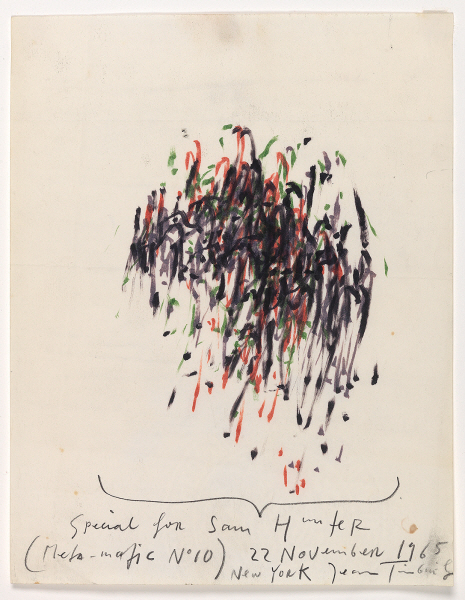 Special for Sam Hunter
(Meta-matic No10) 22 November 1965
New York Jean Tinguely